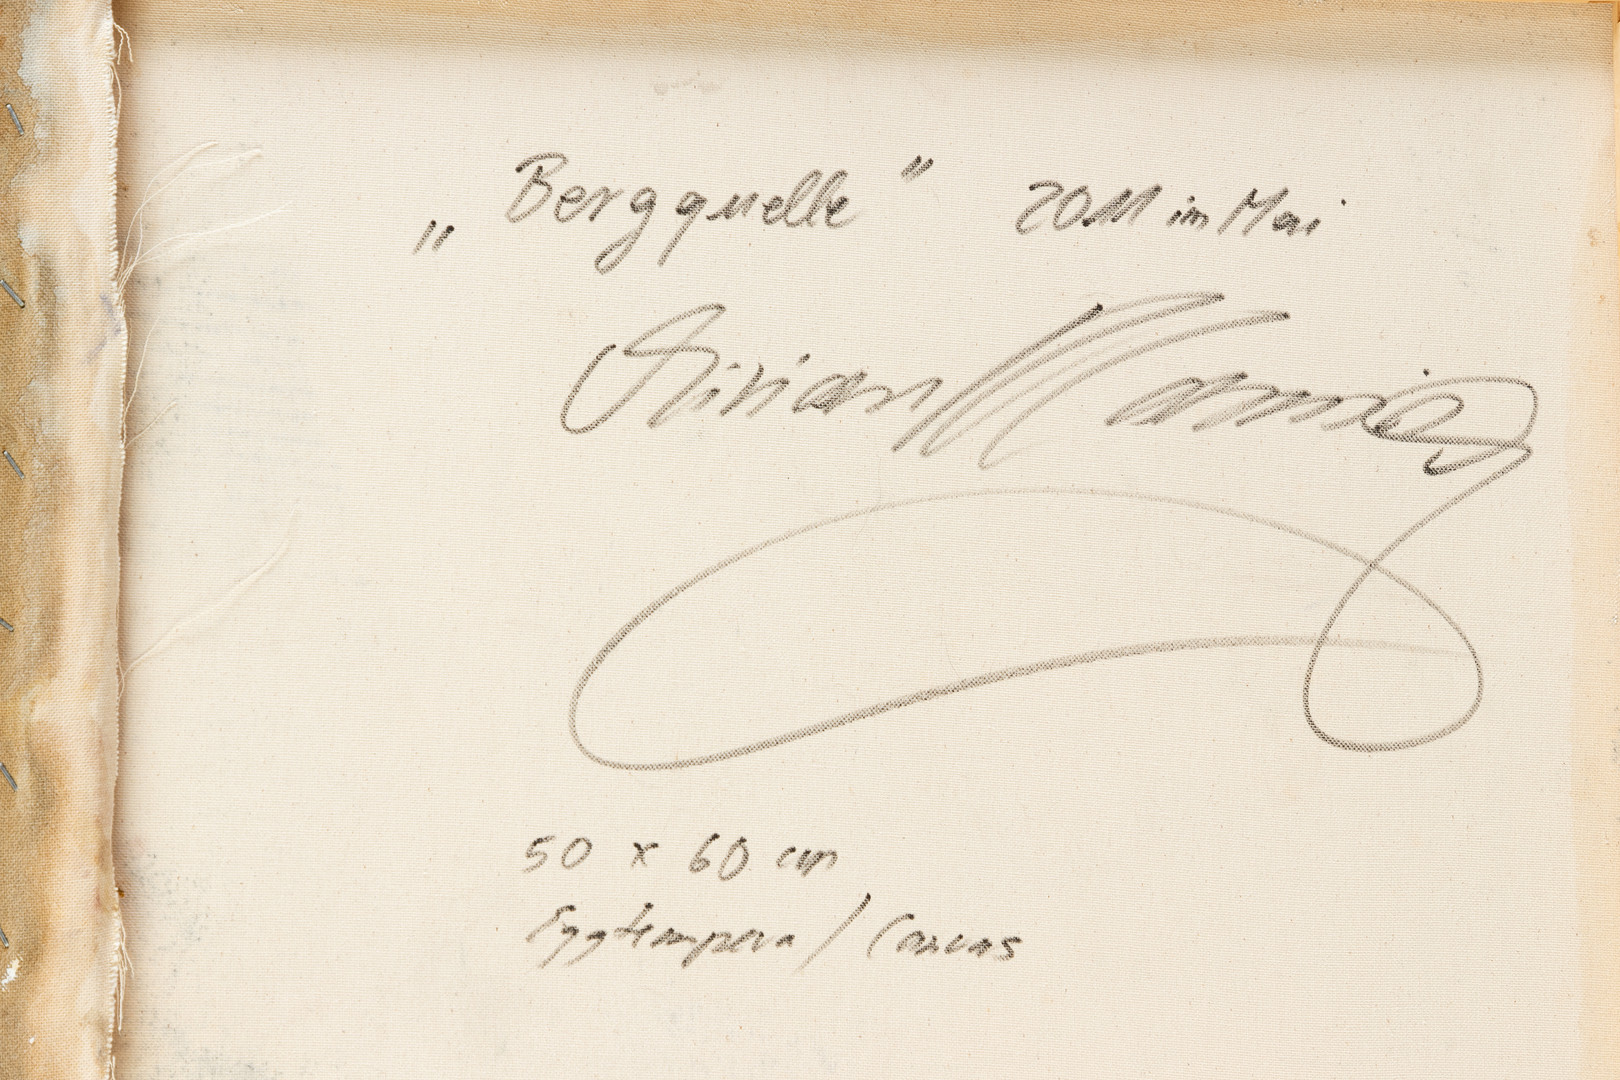 „Bergquelle" 2011 im Mai
50 x 60 cm
Eggtempera / Canvas